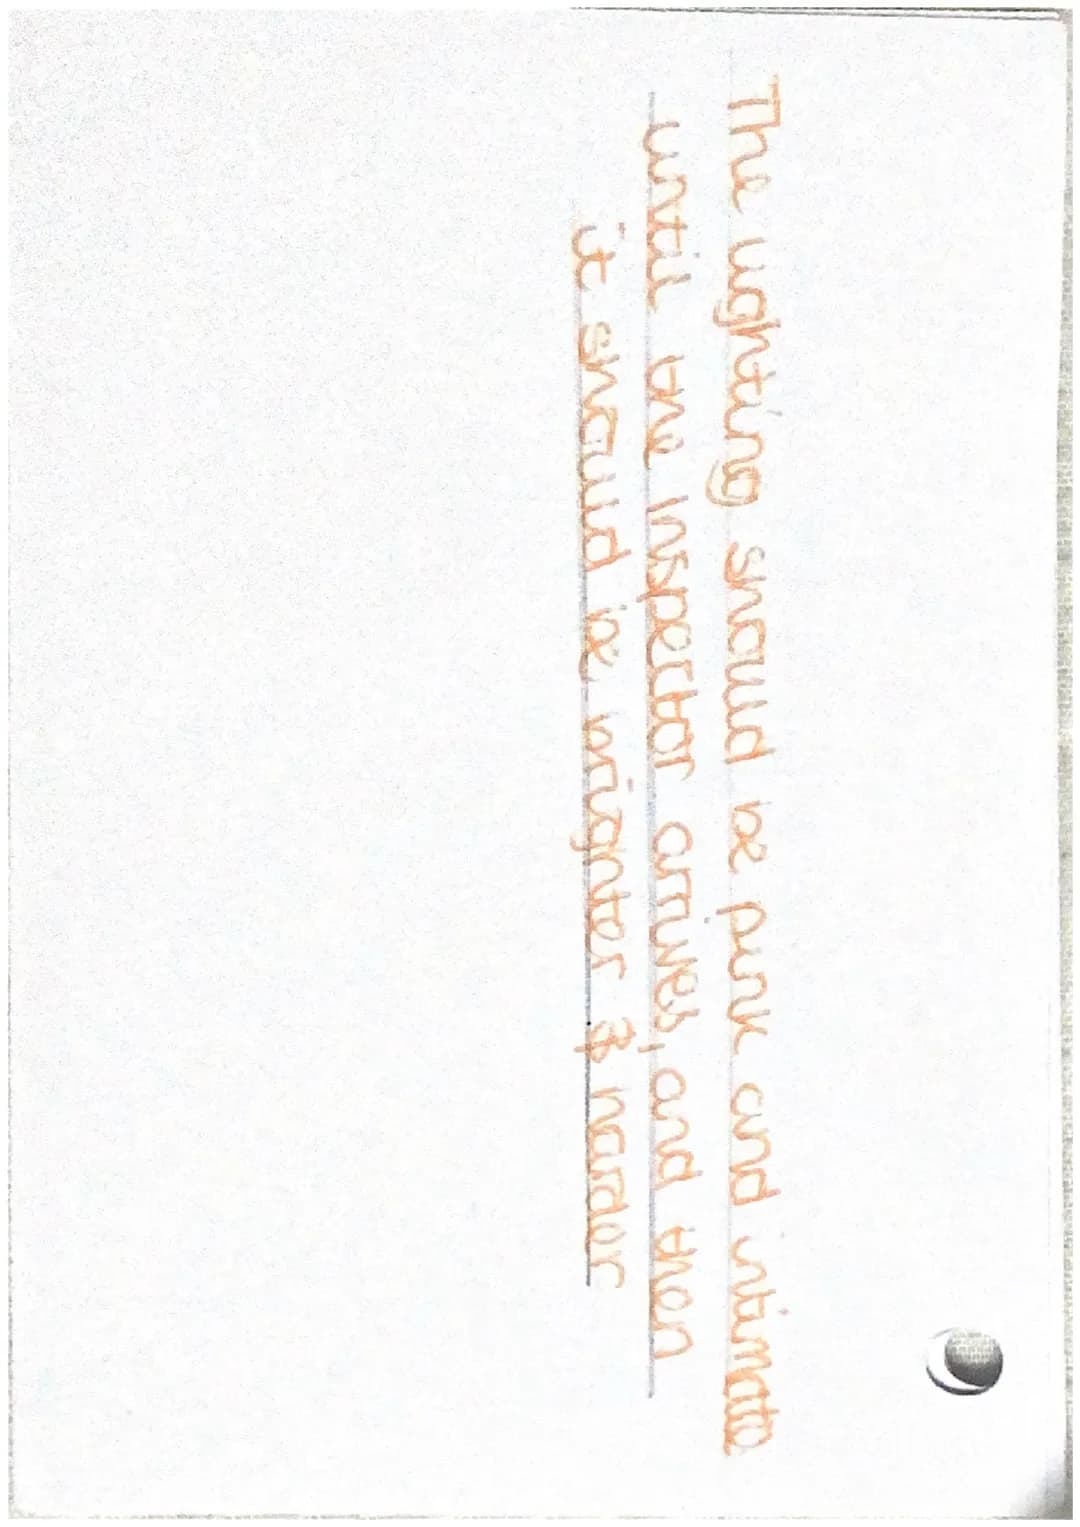 The lighting should be pink and intimate
until the Inspector arrives, and then
it should be brighter & harder